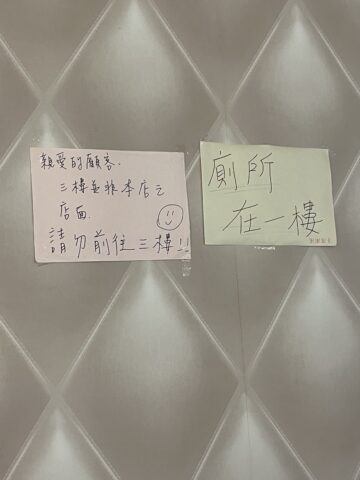 親愛的顧客.
三樓並非本店之
店面.
請勿前往三樓!!
廁所
在一樓